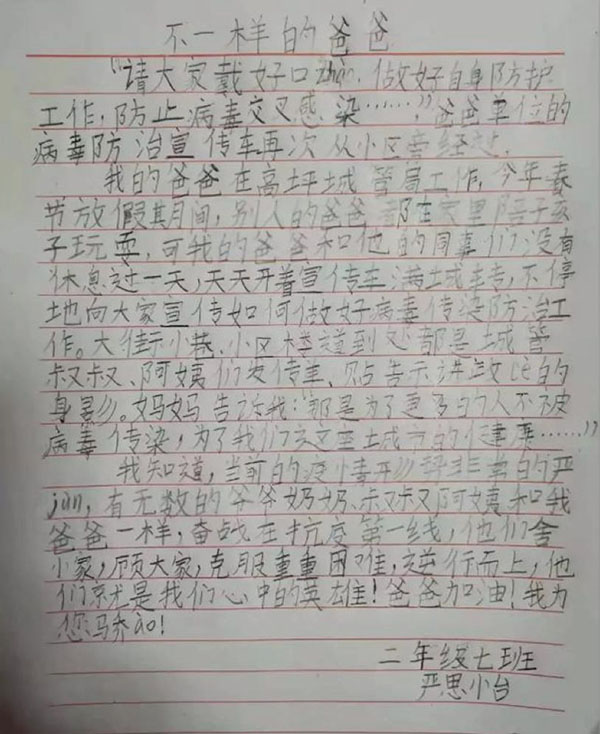 不一样的爸爸
“请大家戴好口zhào，做好自身防护
工作，防止病毒交叉感染……”，爸爸单位的
病毒防治宣传车再次从小区旁经过。
我的爸爸在高坪城管局工作，今年春
节放假其月间，别人的爸爸都在家里陪子孩
子玩耍，可我的爸爸和他的同事们没有
休息过一天，天天开着宣传车满城转，不停
地向大家宣传如何做好病毒传染防治工
作。大街小巷、小区楼道到处都是城管
叔叔、阿姨们发传单、贴告示、讲政cè的
身影。妈妈告诉我：“都是为了更多的人不被
病毒传染，为了我们这座城市的健康……”
我知道，当前的疫情形势非常的严
jùn，有无数的爷爷奶奶、叔叔阿姨和我
爸爸一样，奋战在抗疫第一线，他们舍
小家，顾大家，克服重重困难，逆行而上，他
们就是我们心中的英雄！爸爸加油！我为
您骄ào！
二年级七班
严思小台